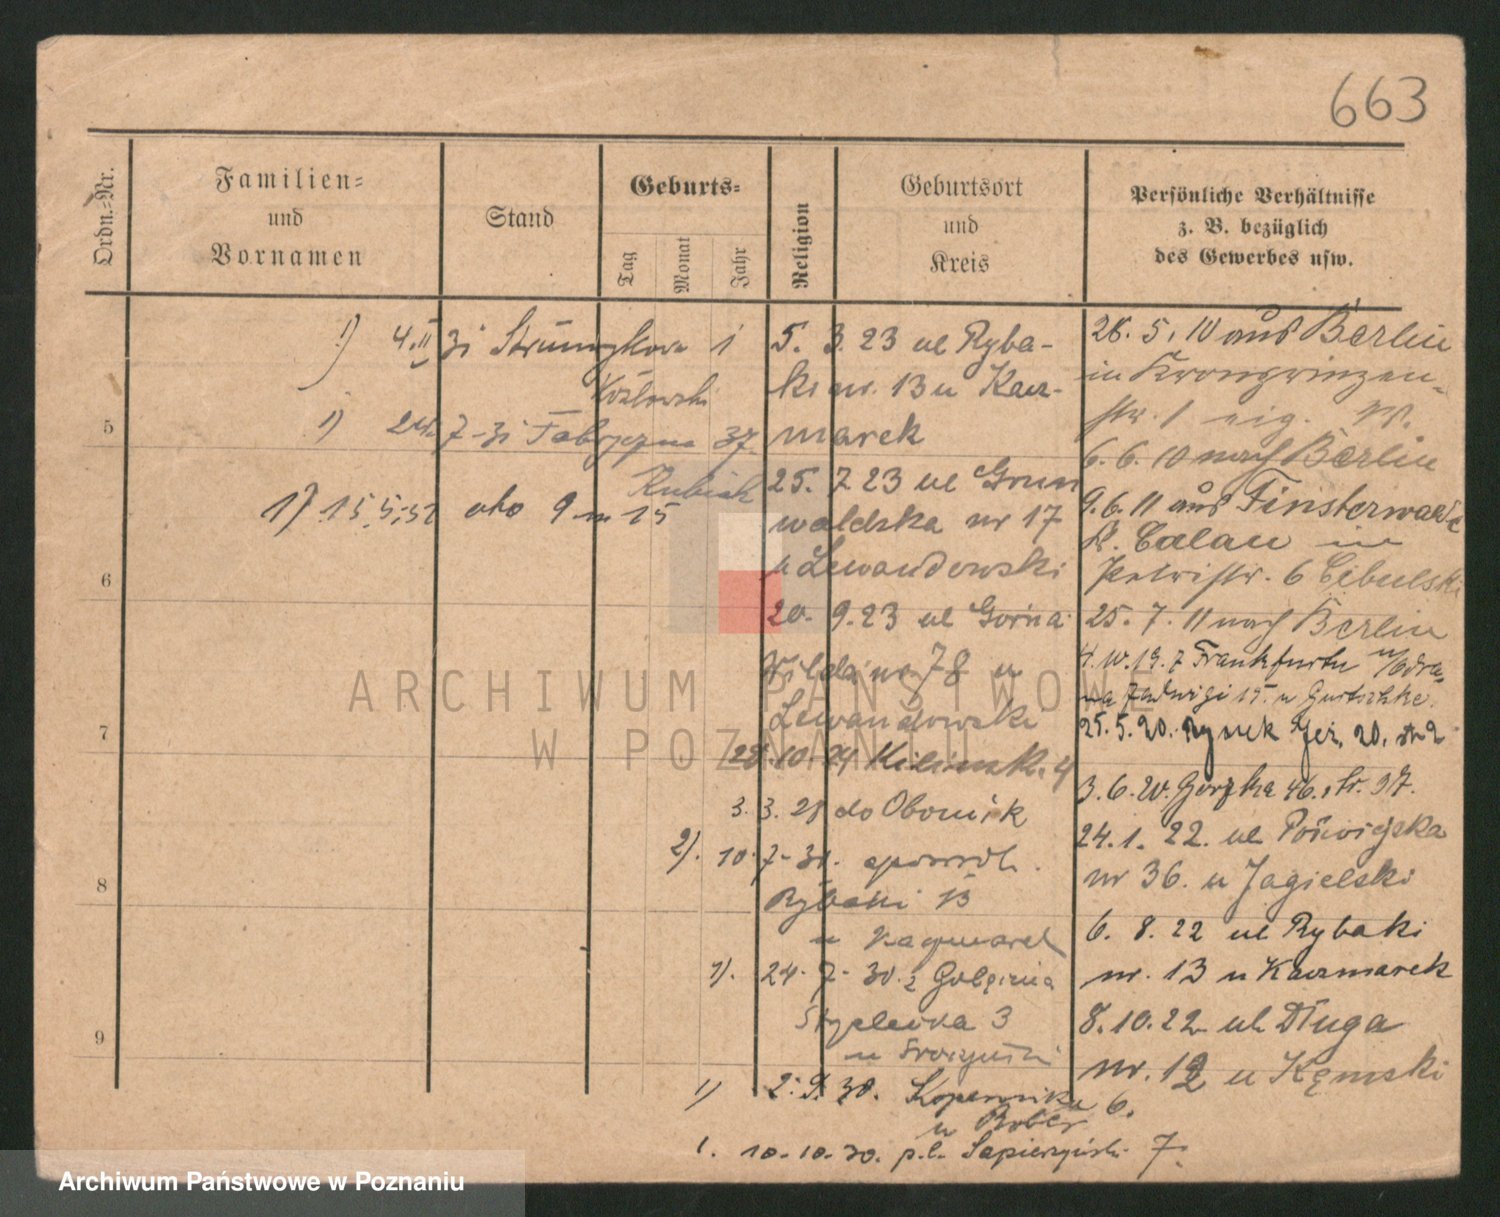 663
Ordn.-Nr.
Familien-
und
Vornamen
Stand
Geburts-
Tag
Monat
Jahr
Religion
Geburtsort
und
Kreis
Persönliche Verhältnisse
z. B. bezüglich
des Gewerbes usw.
5
6
7
8
9
1) 4.II 31 1
Kozłowski
1) 24. 7-31 Fabryczna 37.
Kubiak
1) 15.5.31 oko 9 m 15
5. 3. 23 ul Ryba-
ki nr. 13 u Kacz-
marek
25. 7 23 ul Grun
waldzka nr 17
u Lewandowski
20. 9. 23 ul Górna
Wilda nr 78 u
Lewandowski
28. 10. 24 Kilinsk. 4
3. 3. 28 do Obornik
2). 10. 7-30.
Rybaki 13
u Kaczmarek
1). 24. 7- 30. z Golęcina
3
u
1) 2. 9. 30. Kopernika 6.
u Bober
1. 10.10.30. pl. Sapieżyński 7.
26. 5. 10 aus Berlin
in Kronprinzen-
str. 1 eig. W.
6. 6. 10 nach Berlin
9. 6. 11 aus Finsterwalde
K. Calau in
Petristr. 6 Cibulski
25. 7. 11 nach Berlin
z Frankfurtu n/Odrą
na Jadwigi 15 u
25. 5. 20. Rynek Jeż. 20.
3. 6. 20. 46. str. 97.
24. 1. 22. ul
nr 36. u Jagielski
6. 8. 22 ul Rybaki
nr. 13 u Kaczmarek
8. 10. 22 ul Długa
nr. 12 u Kęmski
ARCHIWUM PAŃSTWOWE
W POZNANIU
Archiwum Państwowe w Poznaniu